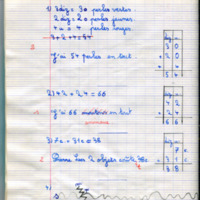 1) 3 diz = 30 perles vertes
2 diz = 20 perles jaunes
4 u = 4 perles rouges
3 + 2 + 4 = 54
J'ai 54 perles en tout
diz u
3 0
+ 2 0
+ 4
5 4
2) 42 + 24 = 66
J'ai 66 moutons en tout
diz u
4 2
+ 2 4
6 6
3)
2 objets coûte 38c
diz u
7
+ 3 1
3 8
4)